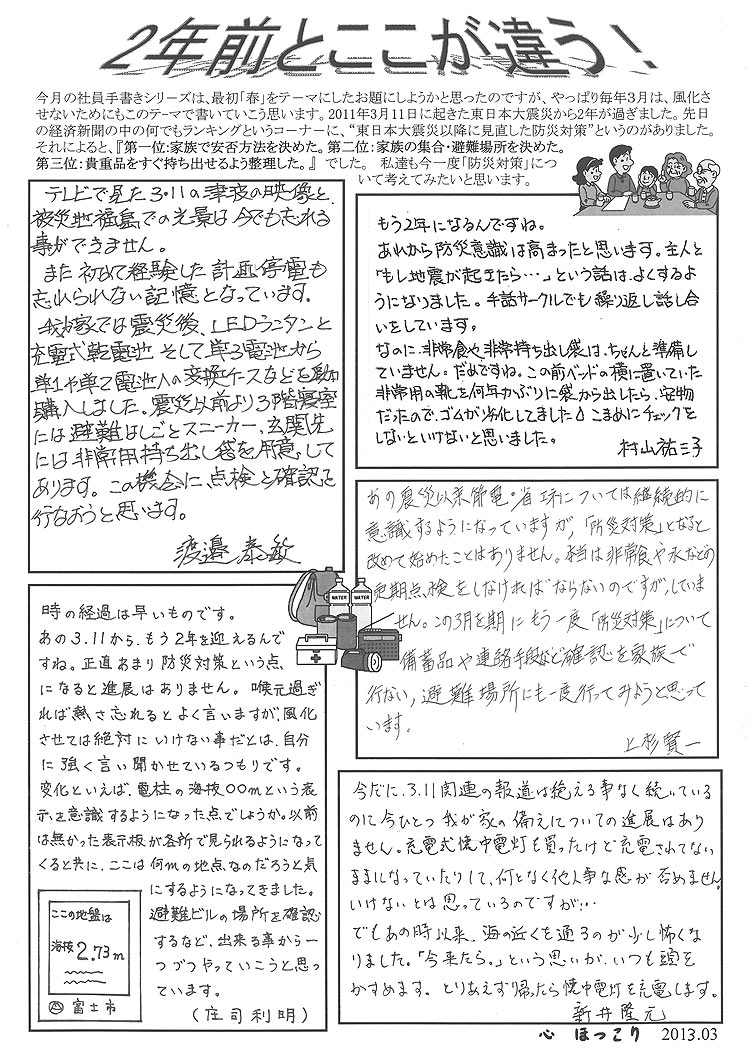 2年前とここが違う!
今月の社員手書きシリーズは、最初「春」をテーマにしたお題にしようかと思ったのですが、やっぱり毎年3月は、風化さ
せないためにもこのテーマで書いていこう思います。2011年3月11日に起きた東日本大震災から2年が過ぎました。先日
の経済新聞の中の何でもランキングというコーナーに、“東日本大震災以降に見直した防災対策”というのがありました。
それによると、『第一位:家族で安否方法を決めた。第二位:家族の集合・避難場所を決めた。
第三位:貴重品をすぐ持ち出せるよう整理した。』でした。 私達も今一度「防災対策」につ
いて考えてみたいと思います。
テレビで見た3・11の津波の映像と、
被災地福島での光景は今でも忘れる
事ができません。
また初めて経験した計画停電も
忘れられない記憶となっています。
我が家では震災後、LEDランタンと
充電式乾電池 そして単3電池から
単1や単2電池への変換ケースなどを
購入しました。震災以前より3階寝室
には避難はしごとスニーカー、玄関先
には非常用持ち出し袋を用意して
あります。この機会に点検と確認を
行なおうと思います。
渡邊泰敏
もう2年になるんですね。
あれから防災意識は高まったと思います。主人と
「もし地震が起きたら…」という話は、よくするよ
うになりました。手話サークルでも繰り返し話し合
いをしています。
なのに、非常食や非常持ち出し袋は、ちゃんと準備し
ていません。だめですね。この前ベッドの横に置いていた
非常用の靴を何年かぶりに袋から出したら、安物
だったので、ゴムが劣化してました。こまめにチェックを
しないといけないと思いました。
村山祐三子
あの震災以来節電・省エネについては継続的に
意識するようになっていますが、「防災対策」となると
改めて始めたことはありません。本当は非常食や水などの
定期点検をしなければならないのですが、していま
せん。この3月を期にもう一度「防災対策」について
備蓄品や連絡手段など確認を家族で
行ない、避難場所にも一度行ってみようと思って
います。
上杉賢一
WATER
WATER
時の経過は早いものです。
あの3.11から、もう2年を迎えるんで
すね。正直あまり防災対策という点
になると進展はありません。喉元過ぎ
れば熱さ忘れるとよく言いますが、風化
させては絶対にいけない事だとは、自分
に強く言い聞かせているつもりです。
変化といえば、電柱の海抜○○mという表
示を意識するようになった点でしょうか。以前
は無かった表示板が各所で見られるようになって
くると共に、ここは何mの地点なのだろうと気
にするようになってきました。
避難ビルの場所を確認
するなど、出来る事から一
つづつやっていこうと思っ
ています。
(庄司利明)
ここの地盤は
海抜 2.73m
富士市
今だに、3.11関連の報道は絶える事なく続いている
のに今ひとつ我が家の備えについての進展はあり
ません。充電式懐中電灯も買ったけど充電されてない
ままになっていたりして、何となく他人事な感が否めません。
いけないとは思っているのですが…
でもあの時以来、海の近くを通るのが少し怖くな
りました。「今来たら。」という思いが、いつも頭を
かすめます。とりあえず帰ったら懐中電灯を充電します。
新井隆元
心 ほっこり 2013.03